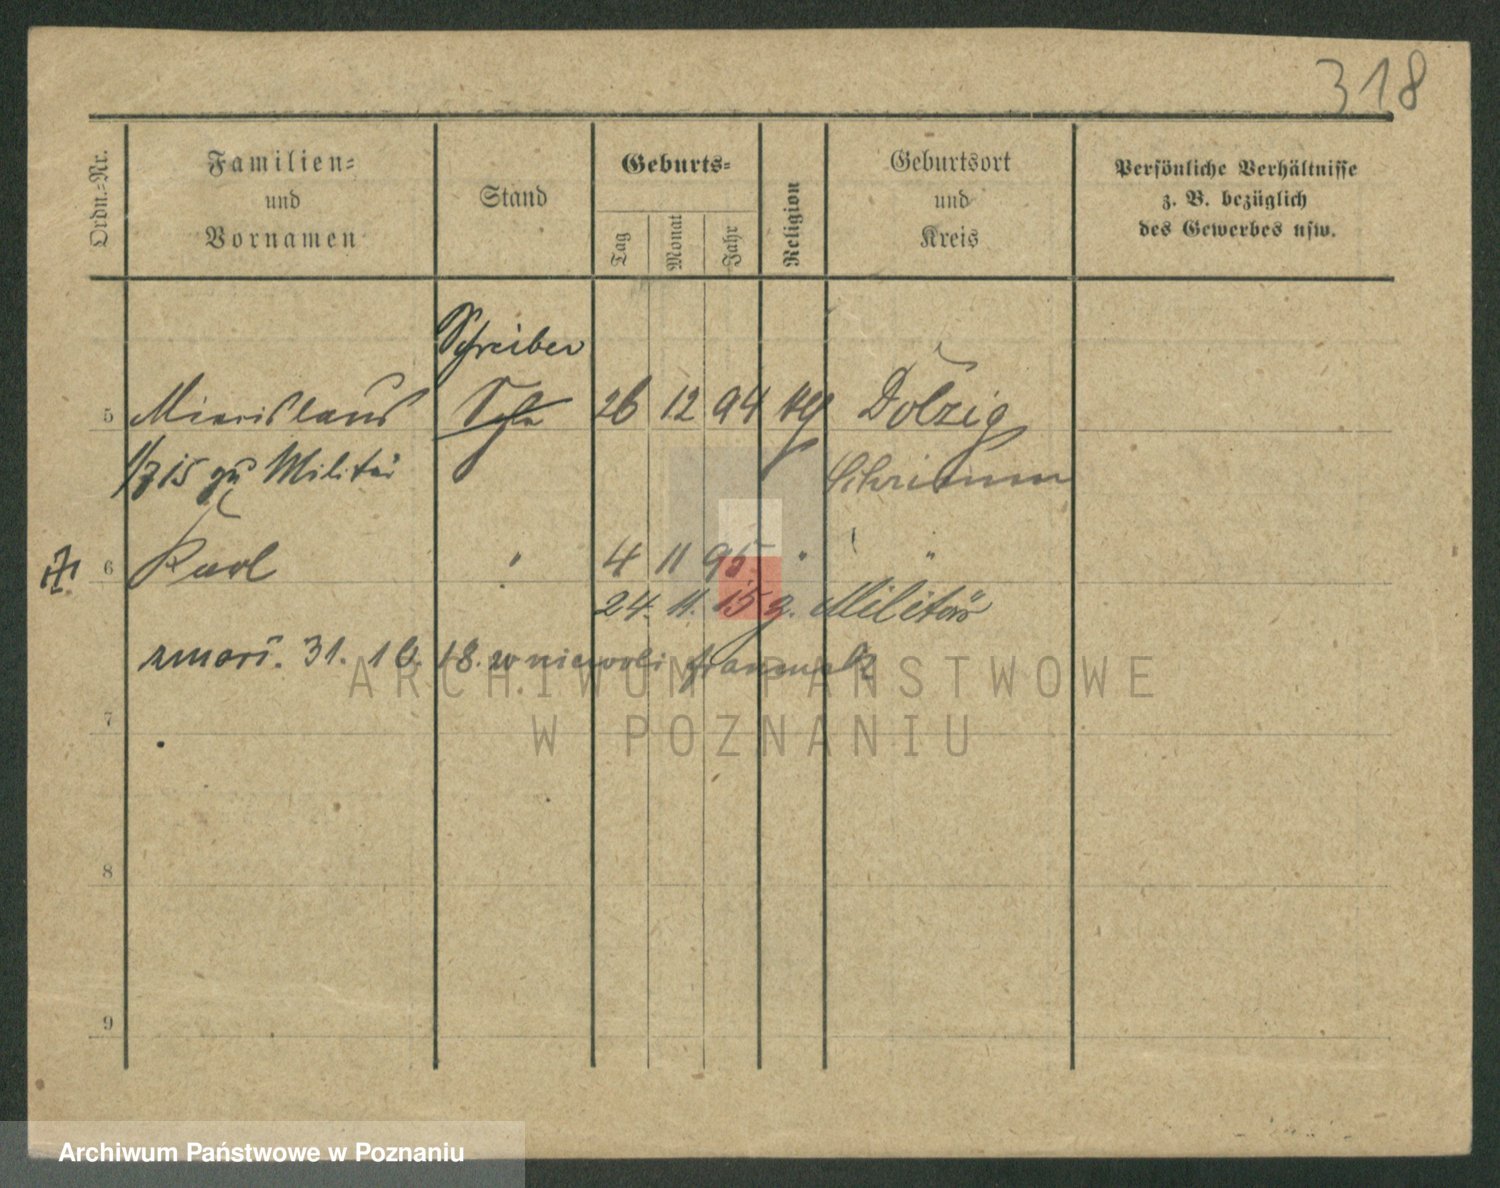 318
Ordn.=Nr.
Familien=
und
Vornamen
Stand
Geburts=
Tag
Monat
Jahr
Religion
Geburtsort
und
Kreis
Persönliche Verhältnisse
z. B. bezüglich
des Gewerbes usw.
Schreiber
5 Miecislaus 26 12 94 Dolzig
15 zu Militär Schrimm
6 Karl " 4 11 95 " "
24. 11. 15 z. Militär
zmarł. 31. 10. 18. w niewoli
7
8
9
ARCHIWUM PAŃSTWOWE
W POZNANIU
Archiwum Państwowe w Poznaniu